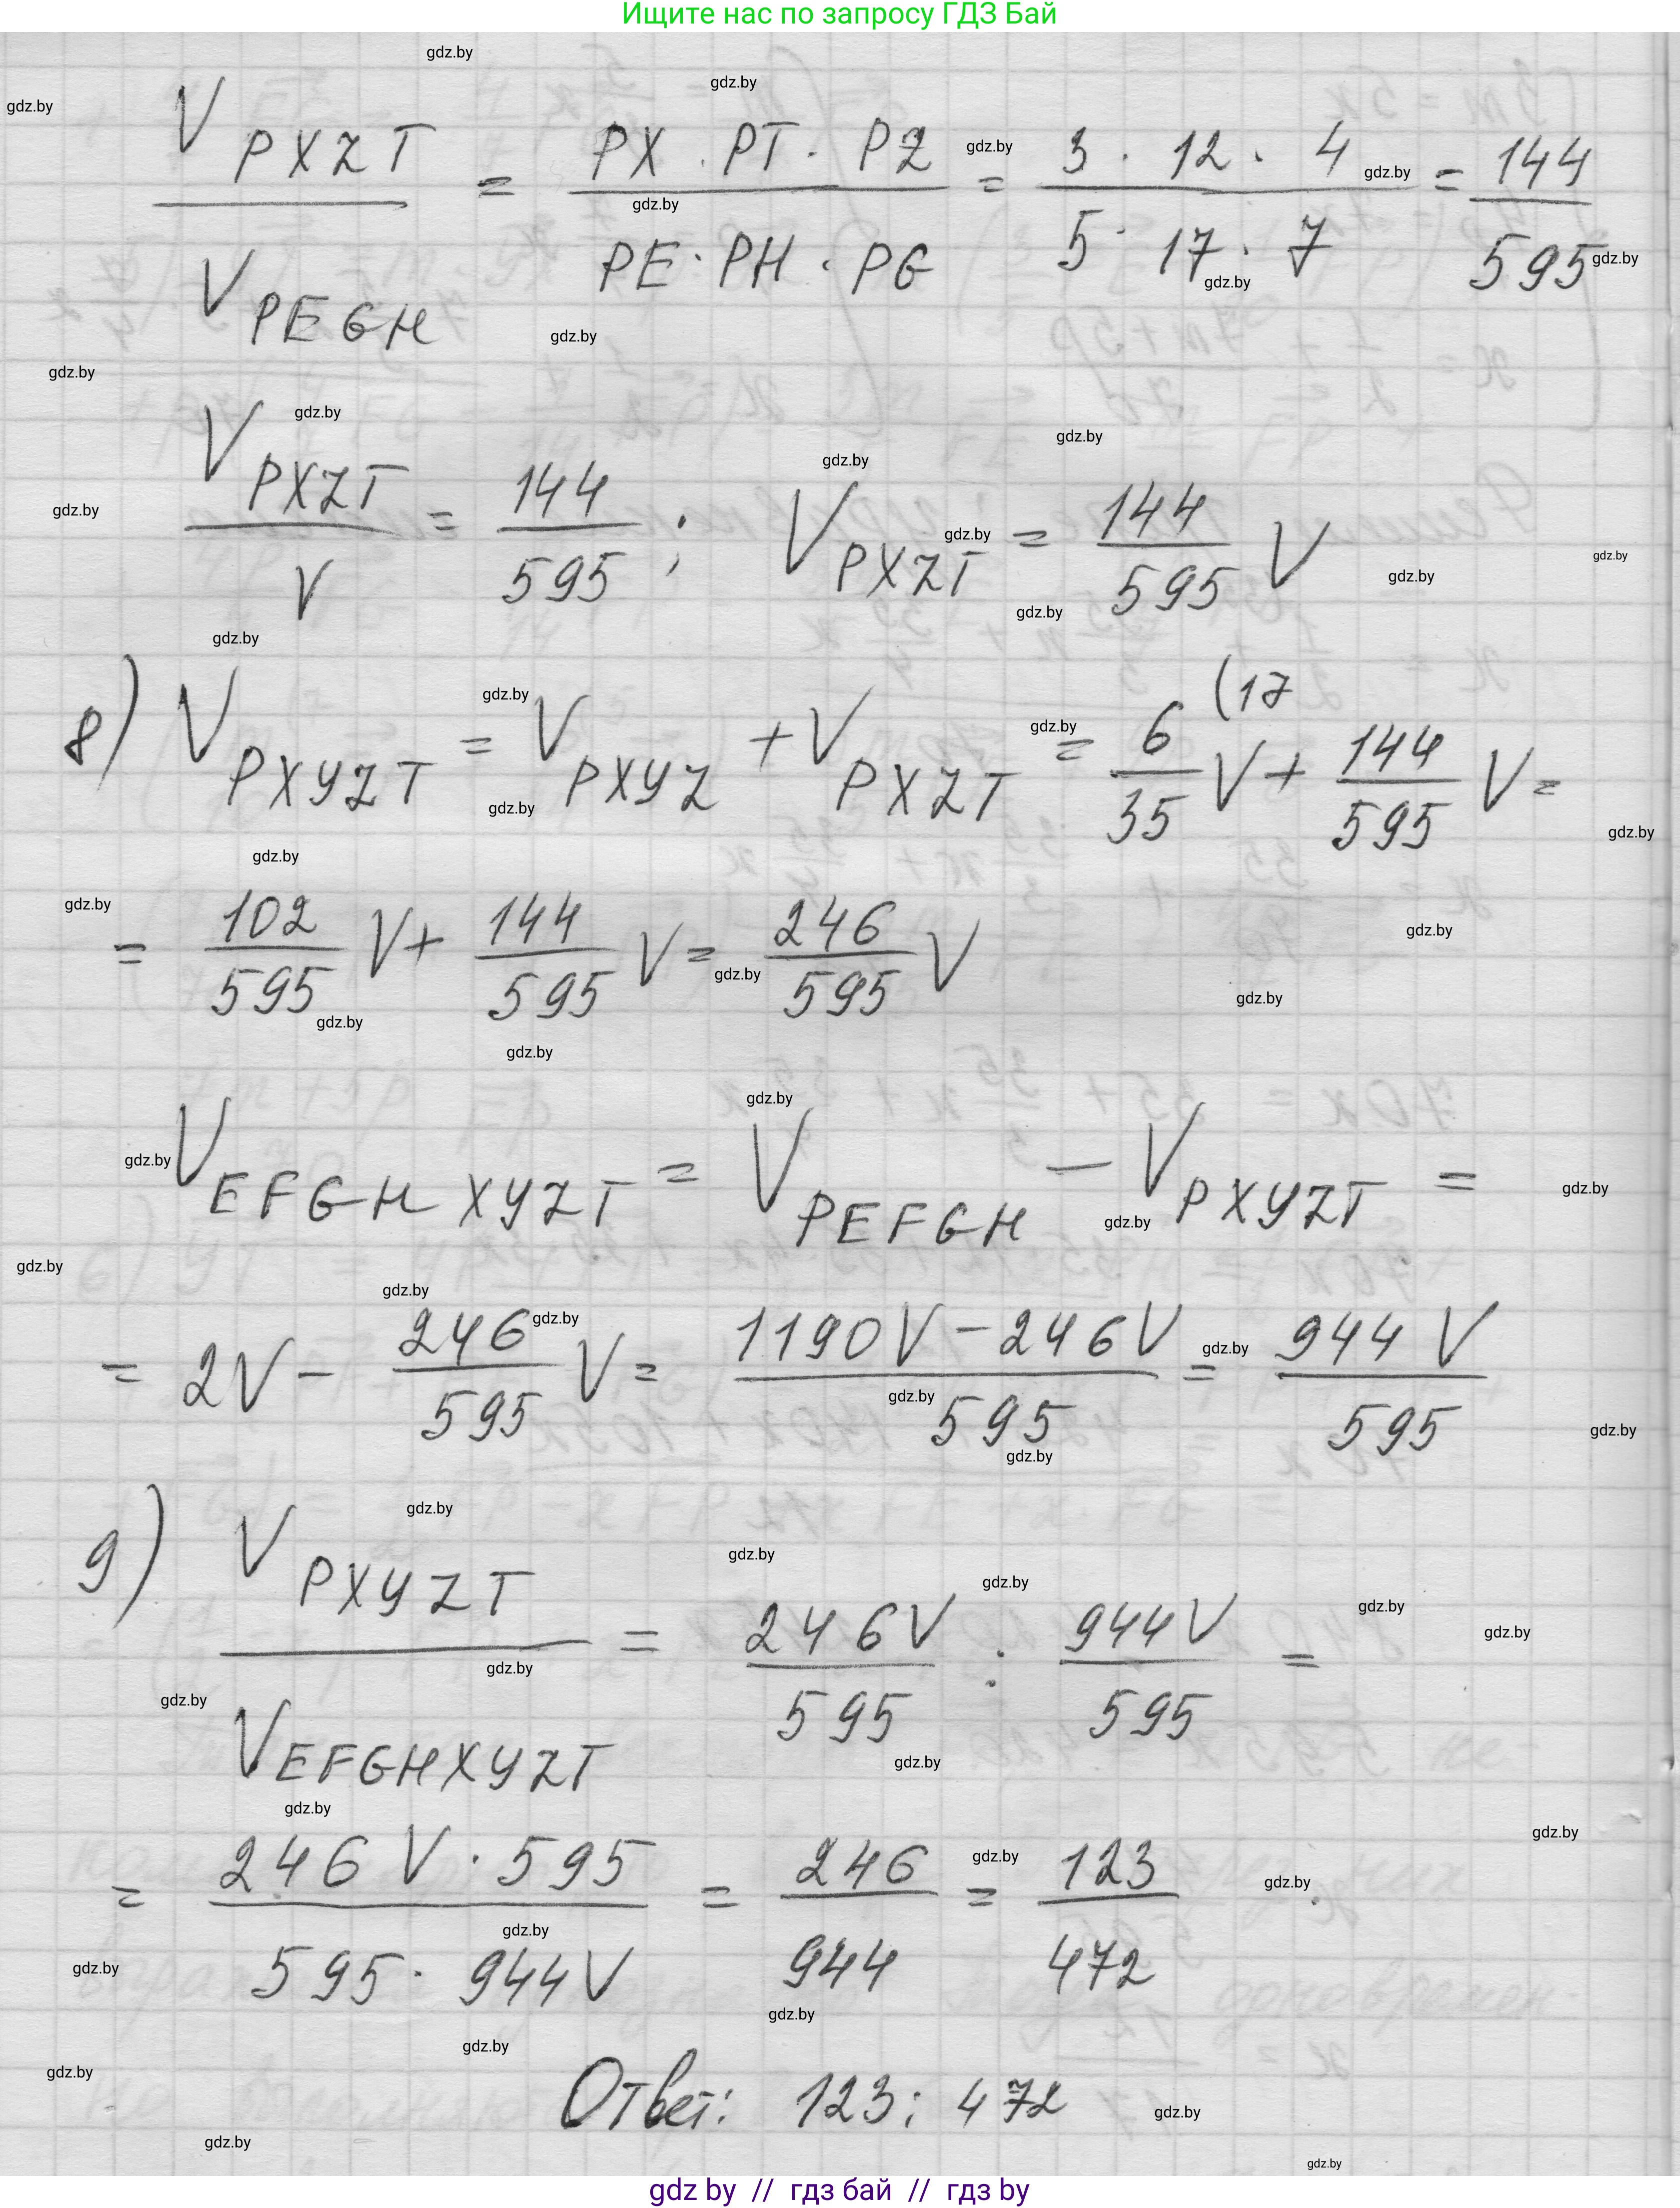 Ищите нас по запросу ГДЗ Бай
V_PXZT / V_PEGH = PX · PT · PZ / PE · PH · PG = 3 · 12 · 4 / 5 · 17 · 7 = 144 / 595
V_PXZT / V = 144 / 595 ; V_PXZT = 144 / 595 V
8) V_PXYZT = V_PXYZ + V_PXZT = 6 (17 / 35 V + 144 / 595 V =
= 102 / 595 V + 144 / 595 V = 246 / 595 V
V_EFGHXYZT = V_PEFGH − V_PXYZT =
= 2V − 246 / 595 V = 1190V − 246V / 595 = 944 V / 595
9) V_PXYZT / V_EFGHXYZT = 246V / 595 : 944V / 595 =
= 246 V · 595 / 595 · 944V = 246 / 944 = 123 / 472 .
Ответ: 123 : 472
gdz by // гдз бай // гдз by
gdz.by